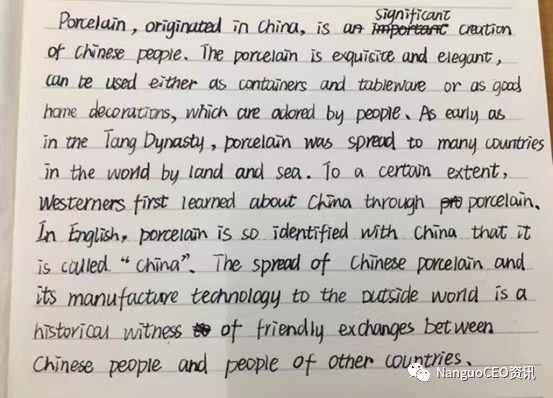 significant
Porcelain, originated in China, is an important creation
of Chinese people. The porcelain is exquisite and elegant,
can be used either as containers and tableware or as good
home decorations, which are adored by people. As early as
in the Tang Dynasty, porcelain was spread to many countries
in the world by land and sea. To a certain extent,
Westerners first learned about China through pro porcelain.
In English, porcelain is so identified with China that it
is called "china". The spread of Chinese porcelain and
its manufacture technology to the outside world is a
historical witness of friendly exchanges between
Chinese people and people of other countries.
NanguoCEO资讯